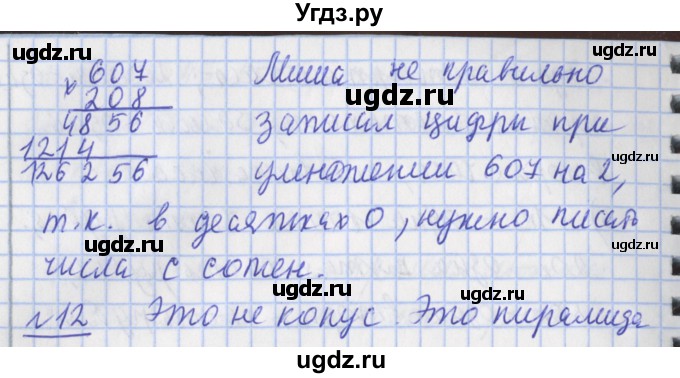 Угдз.ру
607 Миша не правильно
х 208
4856 записал цифры при
1214
126256 умножении 607 на 2,
т.к. в десятках 0, нужно писать
числа с сотен.
№12 Это не конус. Это пирамида
ugdz.ru
ugdz.ru
ugdz.ru
ugdz.ru
ugdz.ru
ugdz.ru
ugdz.ru
ugdz.ru
ugdz.ru
ugdz.ru